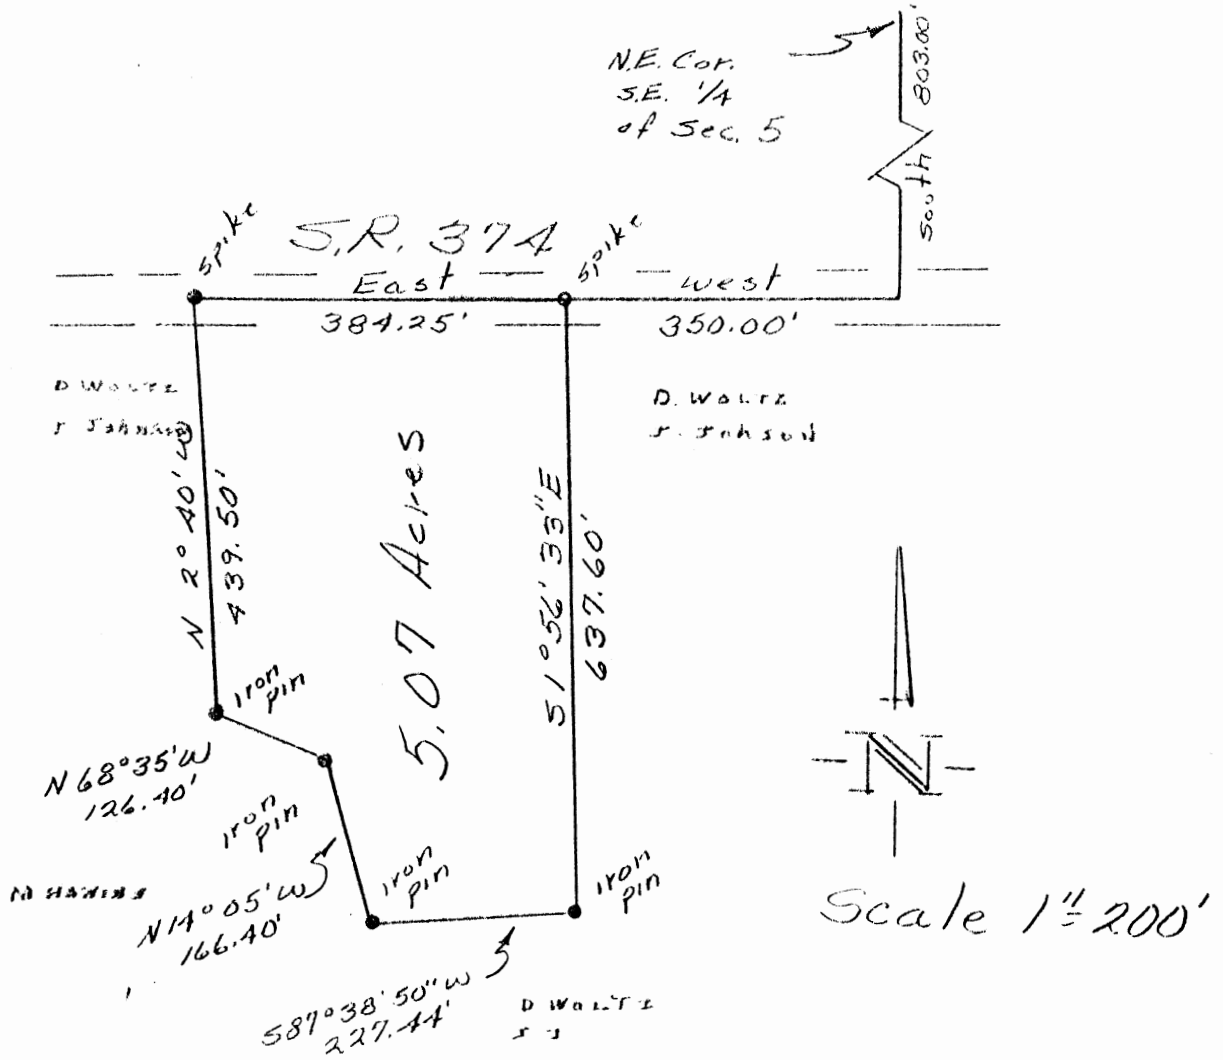 N.E. Cor.
S.E. 1/4
of Sec. 5
South 803.00'
S.R. 374
spike
spike
East
west
384.25'
350.00'
D WOLTZ
D. WOLTZ
J. JOHSON
N 2° 40' W
439.50'
5.07 Acres
S 1° 56' 33" E
637.60'
iron
pin
N 68° 35' W
126.40'
iron
pin
N 14° 05' W
166.40'
iron
pin
iron
pin
S 87° 38' 50" W
227.44'
D WOLTZ
N
Scale 1"=200'